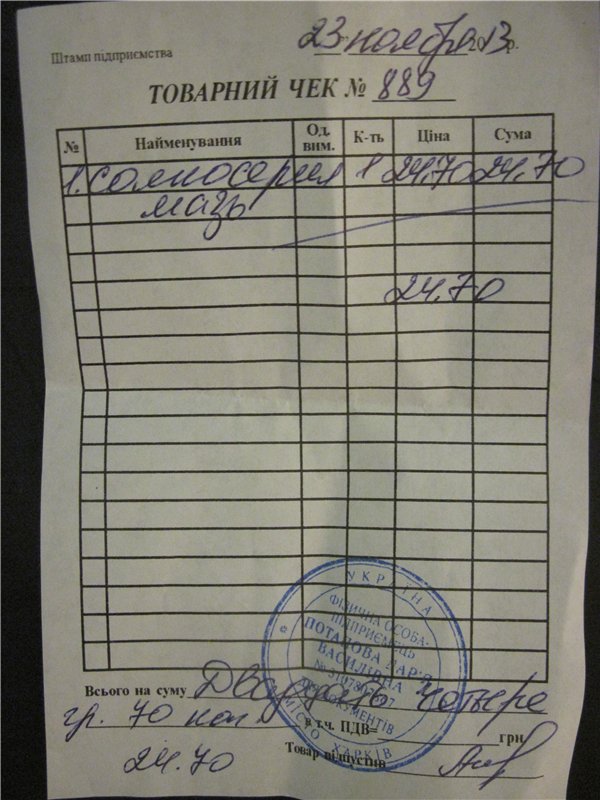 23 ноября 2013 р.
Штамп підприємства
ТОВАРНИЙ ЧЕК № 889
№ Найменування Од. вим. К-ть Ціна Сума
1. солкосерил 1 24.70 24.70
мазь
24.70
УКРАЇНА
ФІЗИЧНА ОСОБА-
ПІДПРИЄМЕЦЬ
ПОТАПОВА
ВАСИЛІВНА
ДОКУМЕНТІВ
МІСТО ХАРКІВ
Всього на суму Двадцать четыре
гр. 70 коп. в т.ч. ПДВ= грн
24.70 Товар відпустив